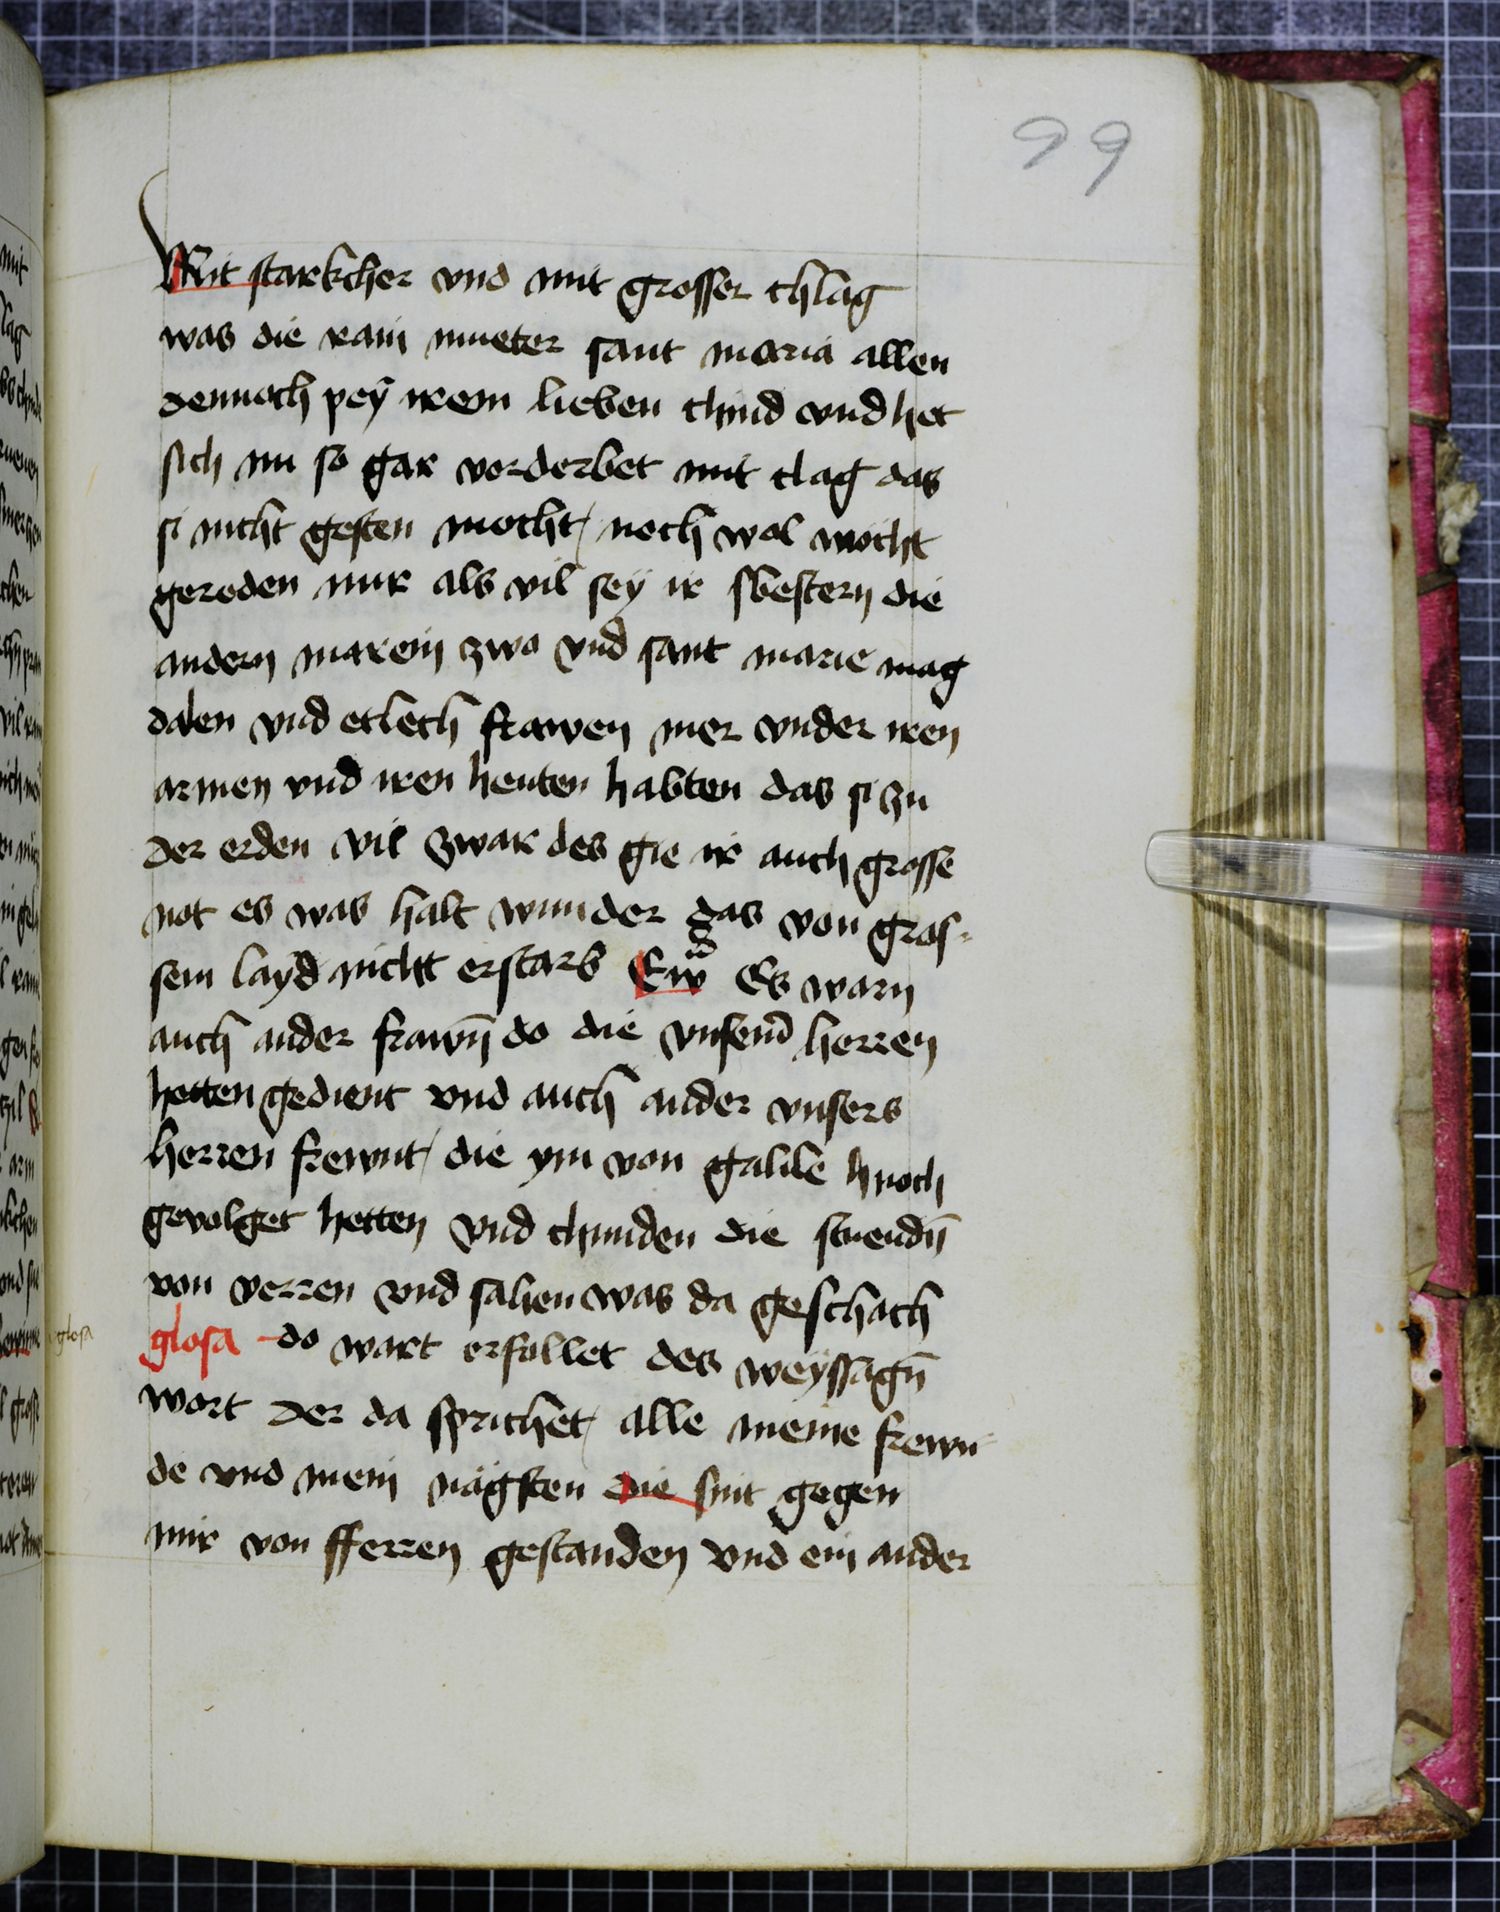 99
Mit starkcher vnd mit grosser chlag
was die rain mueter sant maria allen
dennoch pey irem lieben chind vnd het
sich nu so gar vorderbet mit clag das
si nicht gesten mocht / noch wol mocht
gereden nur als vil sey ir swestern die
andern marein zwo vnd sant marie mag
dalen vnd etlech frawen mer vnder iren
armen vnd iren henten habten das si zu
der erden vil zwar des gie ir auch grosse
not es was halt wunder das von gros-
sem layd nicht erstarb Ew Es warn
auch ander frawn̄ do die vnsem̄ herren
hetten gedient vnd auch ander vnsers
herren frewnt / die ym von galile hnoch
geuolget hetten vnd chunden die stuendn̄
von verren vnd sahen was da geschach
glosa do wart erfollet des weyssagn̄
wort der da sprichet / alle meine frewn
de vnd mein nägsten die sint gegen
mir von fferren gestanden vnd ein ander
glosa